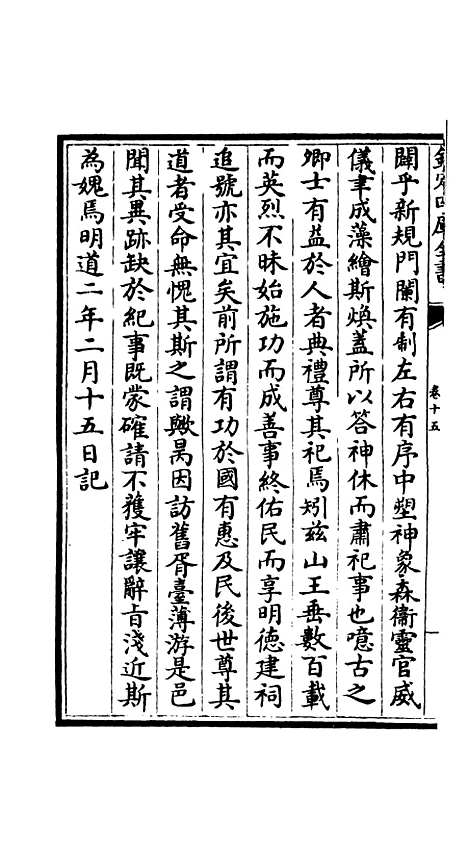 欽定四庫全書
卷十五
闢乎新規門闌有制左右有序中塑神象森衞靈官威
儀聿成藻繪斯煥蓋所以答神休而肅祀事也噫古之
卿士有益於人者典禮尊其祀焉矧兹山王垂數百載
而英烈不昧始施功而成善事終佑民而享明德建祠
追號亦其宜矣前所謂有功於國有惠及民後世尊其
道者受命無愧其斯之謂歟暠因訪舊胥臺薄游是邑
聞其異跡缺於紀事既蒙確請不獲牢讓辭旨淺近斯
為媿焉明道二年二月十五日記